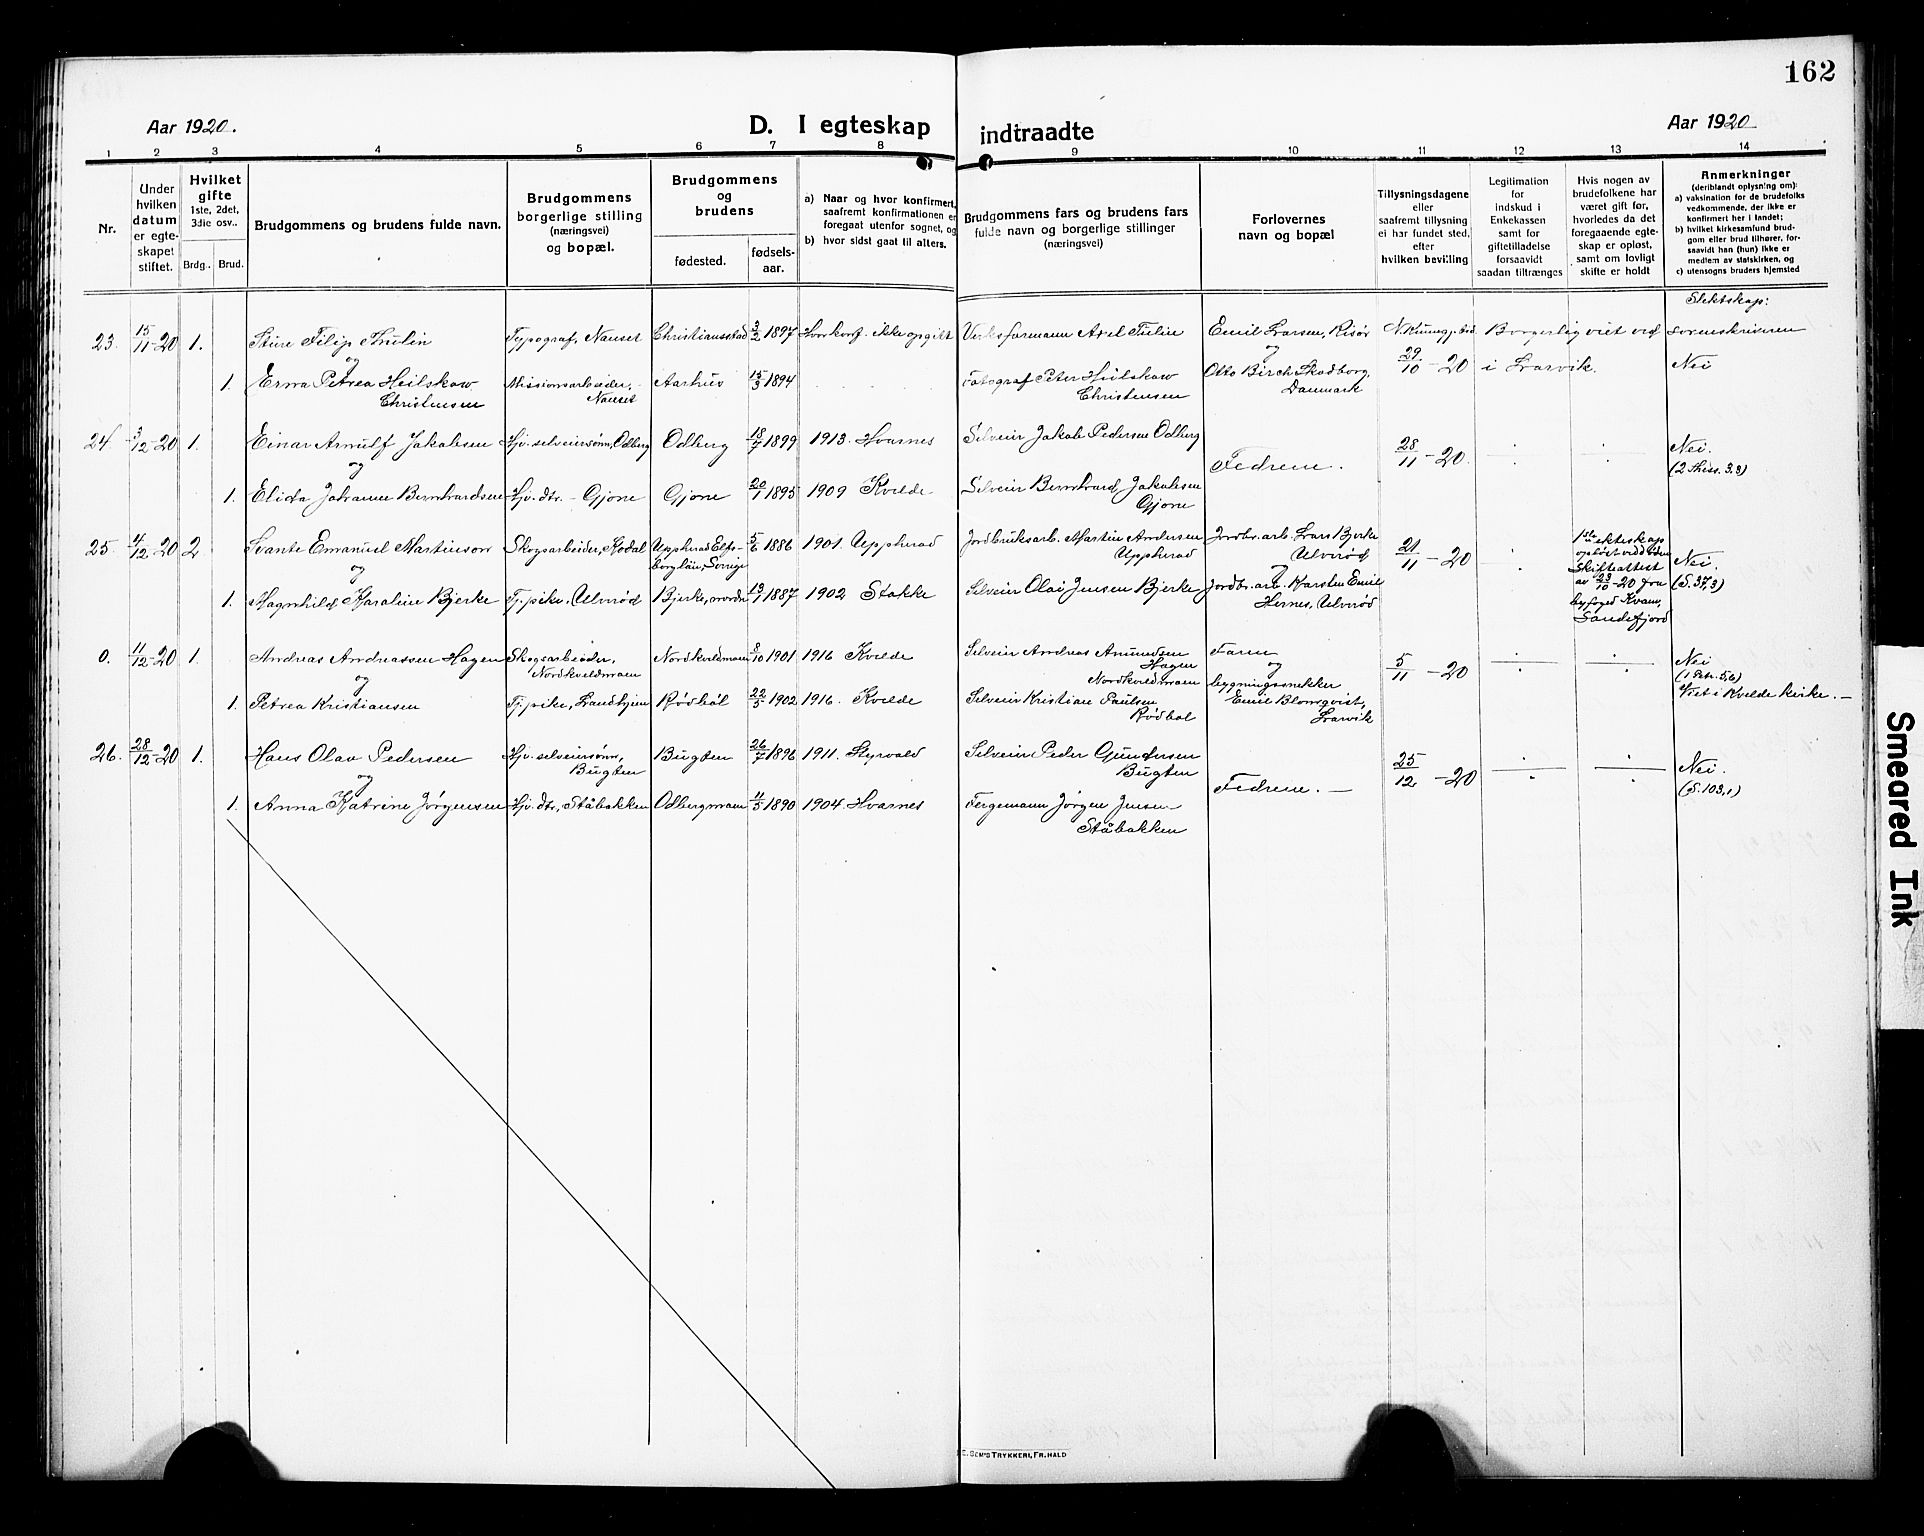 162
Aar 1920.
D. I egteskap indtraadte
Aar 1920
1 2 3 4 5 6 7 8 9 10 11 12 13 14
Nr.
Under hvilken datum er egteskapet stiftet.
Hvilket gifte 1ste, 2det, 3die osv..
Brdg.. Brud.
Brudgommens og brudens fulde navn.
Brudgommens borgerlige stilling (næringsvei) og bopæl.
Brudgommens og brudens
fødested. fødsels-aar.
a) Naar og hvor konfirmert, saafremt konfirmationen er foregaat utenfor sognet, og
b) hvor sidst gaat til alters.
Brudgommens fars og brudens fars fulde navn og borgerlige stillinger (næringsvei)
Forlovernes navn og bopæl
Tillysningsdagene eller saafremt tillysning ei har fundet sted, efter hvilken bevilling
Legitimation for indskud i Enkekassen samt for giftetilladelse forsaavidt saadan tiltrænges
Hvis nogen av brudefolkene har været gift før, hvorledes da det foregaaende egteskap er opløst, samt om lovligt skifte er holdt
Anmerkninger (deriblandt oplysning om):
a) vaksination for de brudefolks vedkommende, der ikke er konfirmert her i landet;
b) hvilket kirkesamfund brudgom eller brud tilhører, forsaavidt han (hun) ikke er medlem av statskirken, og
c) utensogns bruders hjemsted
Slektskap:
23. 15/11-20 1. Sture Filip Thulin Typograf, Nanset Christiansstad 3/2 1897 Hvor konf. ikke opgit Verksformann Axel Tulin Emil Larsen, Risør Borgerlig viet ved sorenskriveren
og og 29/10-20 i Larvik. Nei
1. Erna Petrea Heilskow Christensen Missionsarbeider, Nanset Aarhus 15/3 1894 Fotograf Peter Heilskow Christensen Otto Birch Skodborg, Danmark
24. 3/12-20 1. Einar Arnulf Jakobsen Hjv. selveiersønn, Odberg Odberg 18/7 1899 1913. Hvarnes Selveier Jakob Pedersen Odberg Fedrene. 28/11-20. Nei. (2 Thess. 3.3)
og
1. Elida Johanne Bernhardsen Hjv. dtr. - Gjone Gjone 20/1 1895 1909 Kvelde Selveier Bernhard Jakobsen Gjone
25. 4/12-20 2 Svante Emanuel Martinson Skogsarbeider, Kodal Uppherad Elfsborglän, Sverige 5/6 1886 1901. Uppherad Jordbruksarb. Martin Andersen Uppherad Jordbr. arb. Lars Bjerke Ulverød 21/11-20 1ste ekteskap opløst ved døden Skifteattest av 23/10-20 fra byfoged Kvam, Sandefjord Nei. (S. 37,3)
og og
1. Magnhild Karoline Bjerke Tj. pike, Ulverød Bjerke, nordre 13/1 1887 1902 Stokke Selveier Olai Jensen Bjerke Jordbr. arb. Karsten Emil Hernes, Ulverød
0. 11/12-20 1. Andreas Andreassen Hagen Skogsarbeider, Nordkveldmoen Nordkveldmoen 8/10 1901 1916 Kvelde Selveier Andreas Amundsen Hagen Nordkveldmoen Faren 5/11-20 Nei (1 Petr. 5,6) Viet i Kvelde kirke.
og og
1. Petrea Kristiansen Tj. pike, Landhjem Rødbøl 22/5 1902 1916. Kvelde Selveier Kristian Paulsen Rødbøl bygningssnekker Emil Blomqvist, Larvik
26. 28/12-20 1. Hans Olav Pedersen Hjv. selveiersønn, Bugten Bugten 26/7 1896 1911. Styrvold Selveier Peder Gundersen Bugten Fedrene. 25/12-20 Nei. (S. 103,1)
og
1. Anna Katrine Jørgensen Hjv. dtr. Ståbakken Odbergmoen 4/5 1890 1904 Hvarnes Fergemann Jørgen Jensen Ståbakken
SEM'S TRYKKERI, FR. HALD
Smeared Ink